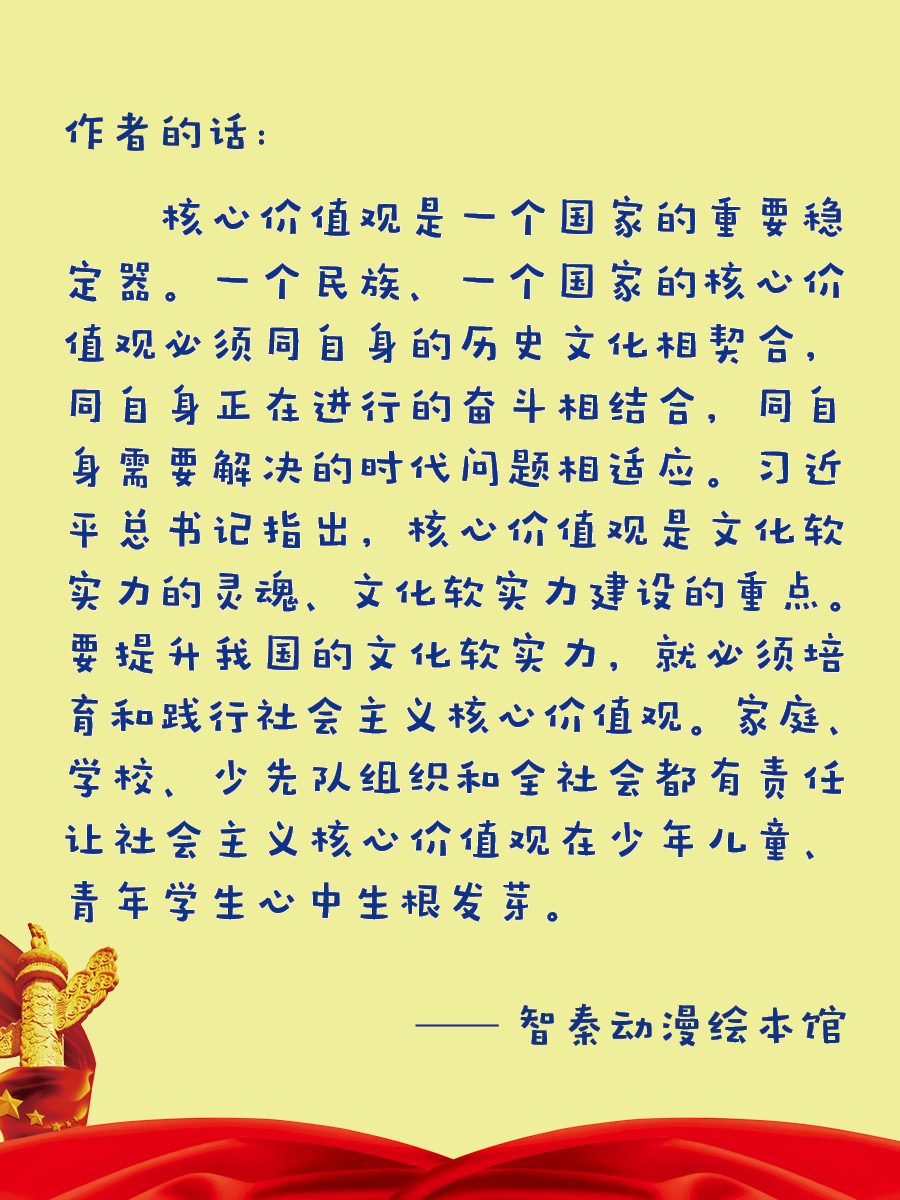 作者的话：
核心价值观是一个国家的重要稳
定器。一个民族、一个国家的核心价
值观必须同自身的历史文化相契合，
同自身正在进行的奋斗相结合，同自
身需要解决的时代问题相适应。习近
平总书记指出，核心价值观是文化软
实力的灵魂、文化软实力建设的重点。
要提升我国的文化软实力，就必须培
育和践行社会主义核心价值观。家庭、
学校、少先队组织和全社会都有责任
让社会主义核心价值观在少年儿童、
青年学生心中生根发芽。
—— 智秦动漫绘本馆